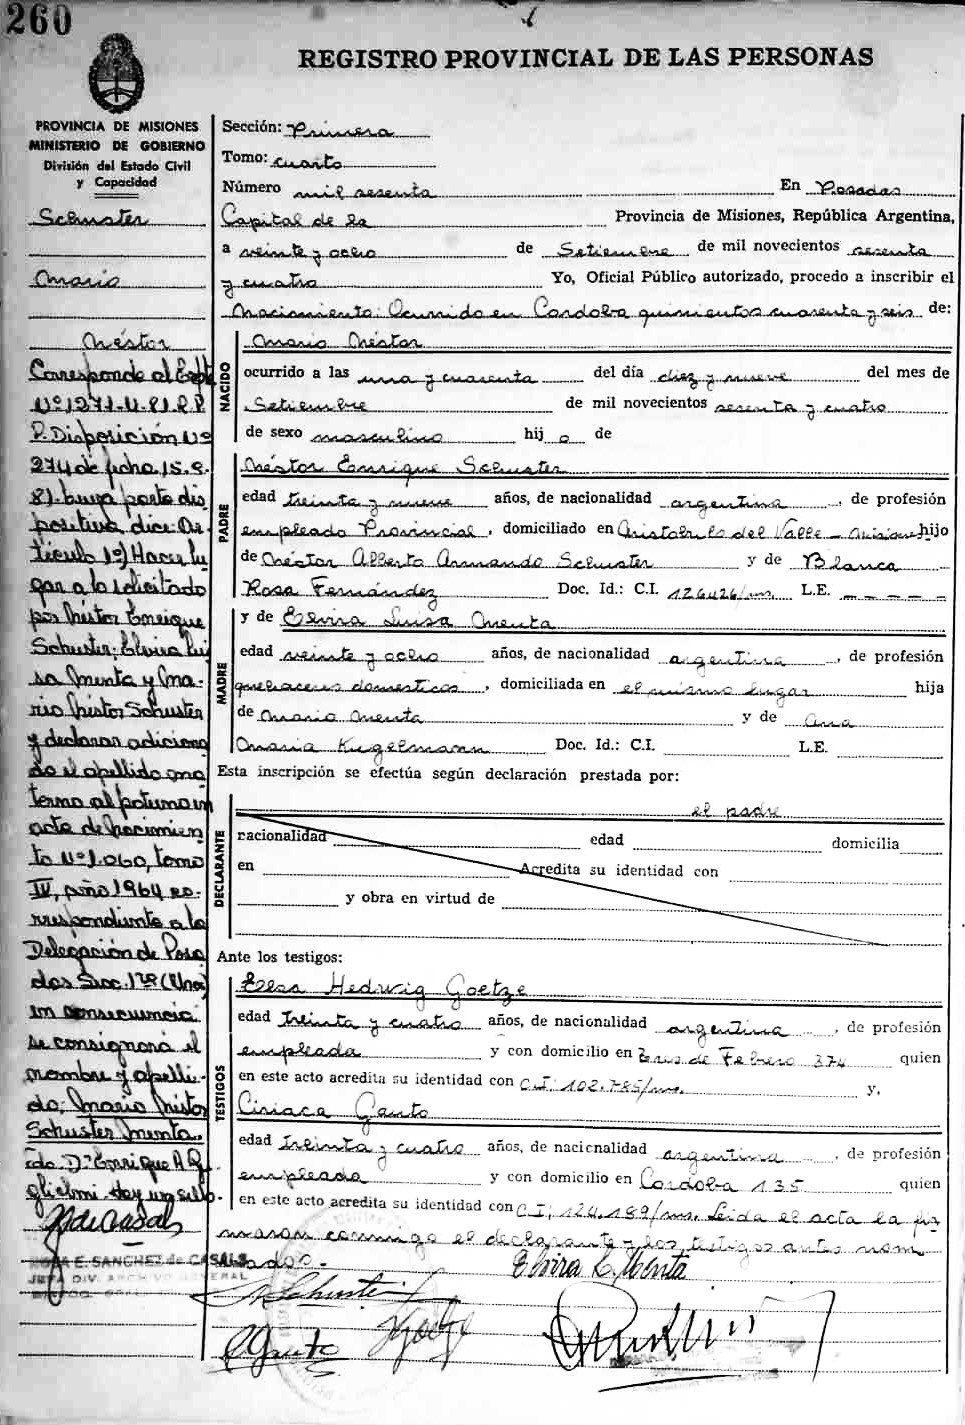 260
REGISTRO PROVINCIAL DE LAS PERSONAS
PROVINCIA DE MISIONES
MINISTERIO DE GOBIERNO
División del Estado Civil
y Capacidad
Schuster
Mario
Néstor
Corresponde al Expte
Nº 1271-U-81.R.P.
P. Disposición Nº
274 de fecha 15.9.
81. cuya parte dis
positiva dice: Ar
tículo 1º) Hacer lu
gar a lo solicitado
por Néstor Enrique
Schuster; Elvira Lui
sa Menta y Ma-
rio Néstor Schuster
y declarar adiciona
do el apellido ma
terno al paterno en
acta de Nacimien
to Nº 1.060, tomo
IV, año 1964 co-
rrespondiente a la
Delegación de Posa
das Secc. 1ra (Una)
en consecuencia
se consignará el
nombre y apelli-
do; Mario Néstor
Schuster Menta.
fdo. Dr. Enrique A. Gu
glielmi. Hay un sello.
ROSA E. SANCHEZ de CASALS
JEFA DIV. ARCHIVO GENERAL
Sección: Primera
Tomo: cuarto
Número mil sesenta En Posadas
Capital de la Provincia de Misiones, República Argentina,
a veinte y ocho de Setiembre de mil novecientos sesenta
y cuatro Yo, Oficial Público autorizado, procedo a inscribir el
Nacimiento: Ocurrido en Cordoba quinientos cuarenta y seis de:
NACIDO
Mario Néstor
ocurrido a las una y cuarenta del día diez y nueve del mes de
Setiembre de mil novecientos sesenta y cuatro
de sexo masculino hij o de
PADRE
Néstor Enrique Schuster
edad treinta y nueve años, de nacionalidad argentina, de profesión
empleado Provincial, domiciliado en Aristobulo del Valle - Misiones hijo
de Néstor Alberto Armando Schuster y de Blanca
Rosa Fernández Doc. Id.: C.I. 126426/ms. L.E. - - - - -
MADRE
y de Elvira Luisa Menta
edad veinte y ocho años, de nacionalidad argentina, de profesión
quehaceres domesticos, domiciliada en el mismo lugar hija
de Mario Menta y de Ana
Maria Kugelmann Doc. Id.: C.I. L.E.
Esta inscripción se efectúa según declaración prestada por:
DECLARANTE
el padre
nacionalidad edad domicilia
en Acredita su identidad con
y obra en virtud de
Ante los testigos:
TESTIGOS
Elsa Hedwig Goetze
edad treinta y cuatro años, de nacionalidad argentina, de profesión
empleada y con domicilio en Tres de Febrero 374 quien
en este acto acredita su identidad con C.I: 102.785/ms. y,
Ciriaca Gauto
edad treinta y cuatro años, de nacionalidad argentina, de profesión
empleada y con domicilio en Cordoba 135 quien
en este acto acredita su identidad con C.I; 124.189/ms. Leida el acta la fir
maron conmigo el declarante y los testigos antes nom
brados.
Elvira L. Menta
N Schuster
CGauto